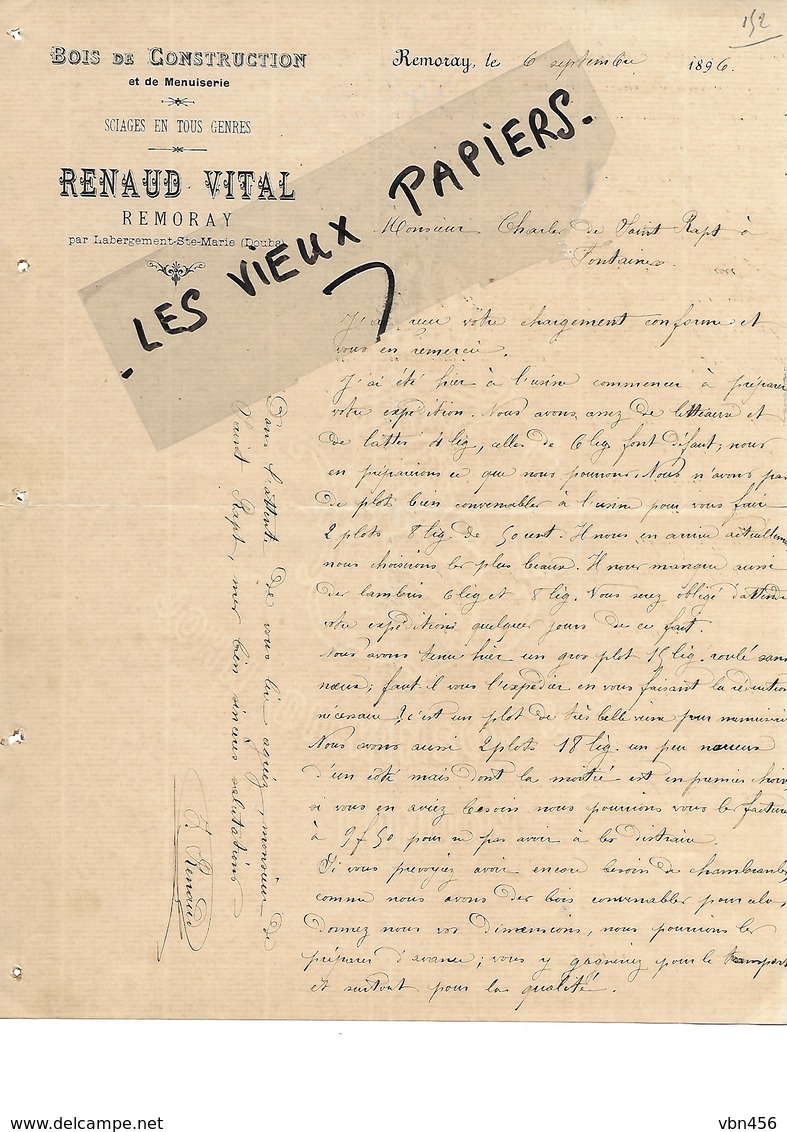 152
BOIS DE CONSTRUCTION
et de Menuiserie
SCIAGES EN TOUS GENRES
RENAUD VITAL
REMORAY
par Labergement-Ste-Marie (Doubs)
Remoray, le 6 septembre 1896.
. LES VIEUX PAPIERS.
Monsieur Charles de Saint Rapt à
Fontaines
J'ai reçu votre chargement conforme et
vous en remercie.
J'ai été hier à l'usine commencer à préparer
votre expédition. Nous avons assez de litteaux et
de lattes 4 lig., celles de 6 lig font défaut; nous
en préparerons ce que nous pourrons. Nous n'avons pas
de plots bien convenables à l'usine pour vous faire
2 plots 8 lig de 50 cent. Il nous en arrive actuellement
nous choisirons les plus beaux. Il nous manque aussi
des lambris 6 lig et 8 lig. Vous serez obligé d'attendre
votre expéditions quelques jours de ce fait.
Nous avons tenu hier un gros plot 15 lig. roulé sans
nœuds; faut il vous l'expédier en vous faisant la réduction
nécessaire? c'est un plot de très belle veine pour menuiserie
Nous avons aussi 2 plots 18 lig. un peu nœueux
d'un côté mais dont la moitié est en premier choix,
si vous en aviez besoin nous pourrions vous les facturer
à 9f50 pour ne pas avoir à les distraire.
Si vous prévoyiez avoir encore besoin de chambranles,
comme nous avons des bois convenables pour cela,
donnez nous vos dimensions, nous pourrions les
préparer d'avance; vous y gagneriez pour le transport
et surtout pour la qualité.
Dans l'attente de vous lire agréez, monsieur de
Saint Rapt, mes bien sincères salutations
J. Renaud
delcampe.net
vbn456